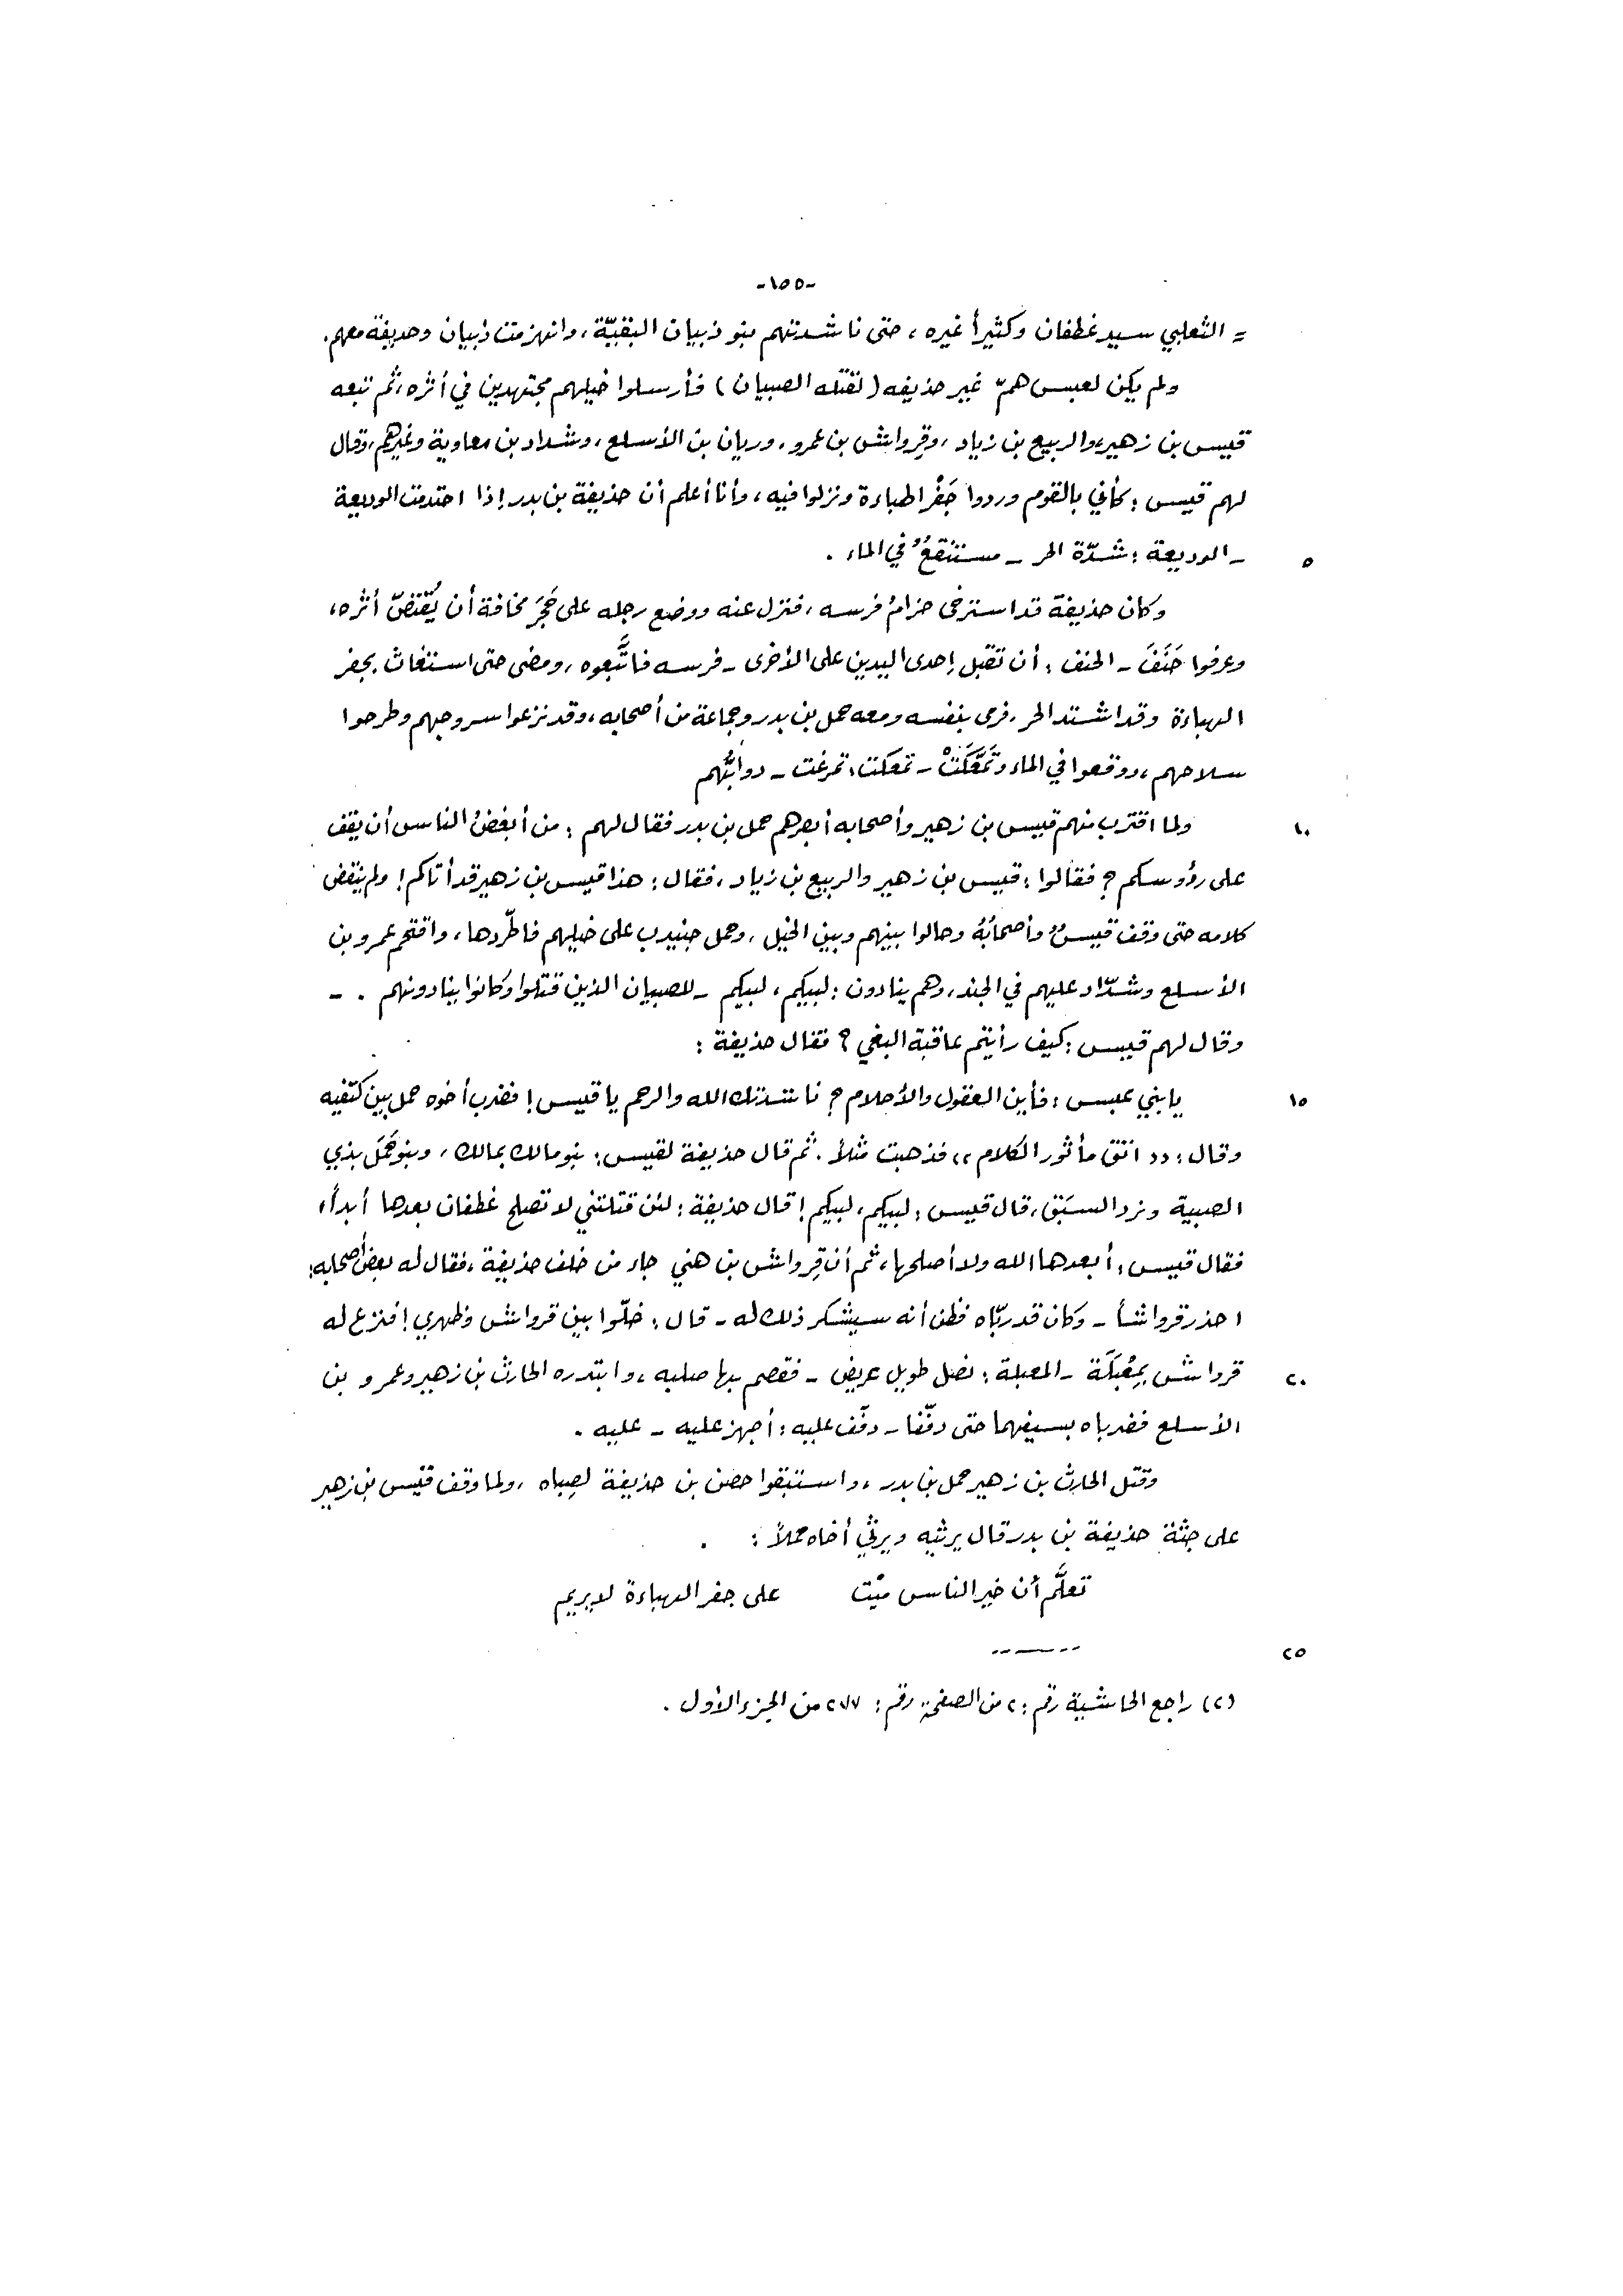 -١٥٥-
= الثعلبي سيد غطفان وكثيراً غيره ، حتى ناشدتهم بنو ذبيان البقيّة ، وانهزمت ذبيان وحذيفة معهم .
ولم يكن لعبس همّ غير حذيفه ( لقتله الصبيان ) فأرسلوا خيلهم مجتهدين في أثره ، ثم تبعه
قيس بن زهير ، والربيع بن زياد ، وقِرواش بن عمرو ، وريان بن الأسلع ، وشداد بن معاوية وغيرهم ، وقال
لهم قيس : كأني بالقوم وردوا جَفْرَ الهباءة ونزلوا فيه ، وأنا أعلم أن حذيفة بن بدر إذا احتدمت الوديعة
٥ ــ الوديعة : شدّة الحر ــ مستنقعٌ في الماء .
وكان حذيفة قد استرخى حزامُ فرسه ، فنزل عنه ووضع رجله على حَجَرَ مخافة أن يُقتصّ أثره ،
وعرفوا حَنَفَ ــ الحنف : أن تقبل إحدى اليدين على الأخرى ــ فرسه فاتَّبعوه ، ومضى حتى استغاث بجفر
الهباءة وقد اشتد الحر ، فرمى بنفسه ومعه حمل بن بدر وجماعة من أصحابه ، وقد نزعوا سروجهم وطرحوا
سلاحهم ، ووقعوا في الماء وتَمَعَّكَتْ ــ تمعكت : تمرغت ــ دوابُّهم
١٠ ولما اقترب منهم قيس بن زهير وأصحابه أبصرهم حمل بن بدر فقال لهم : من أبغضُ الناس أن يقف
على رؤوسكم ؟ فقالوا : قيس بن زهير والربيع بن زياد ، فقال : هذا قيس بن زهير قد أتاكم ! ولم ينقض
كلامه حتى وقف قيسٌ وأصحابُهُ وحالوا بينهم وبين الخيل ، وحمل جنيدب على خيلهم فاطّردها ، واقتحم عمرو بن
الأسلع وشدّاد عليهم في الجند ، وهم ينادون : لبيكم ، لبيكم ــ للصبيان الذين قتلوا وكانوا ينادونهم . ــ
وقال لهم قيس : كيف رأيتم عاقبة البغي ؟ فقال حذيفة :
١٥ يا بني عبس : فأين العقول والأحلام ؟ ناشدتك الله والرحم يا قيس ! فضرب أخوه حمل بين كتفيه
وقال : (( اتق مأثور الكلام )) فذهبت مثلاً . ثم قال حذيفة لقيس : بنو مالك بمالك ، وبنو حَمَل بذي
الصبية ونرد السبَق ، قال قيس : لبيكم ، لبيكم ! قال حذيفة : لئن قتلتني لا تصلح غطفان بعدها أبداً ،
فقال قيس : أبعدها الله ولا أصلحها ، ثم أن قِرواش بن هني جاء من خلف حذيفة ، فقال له بعض أصحابه :
احذر قرواشاً ــ وكان قد ربّاه فظن أنه سيشكر ذلك له ــ قال : خلّوا بين قرواش وظهري ! فنزع له
٢٠ قرواش بمِعْبَلَة ــ المعبلة : نصل طويل عريض ــ فقصم بها صلبه ، وابتدره الحارث بن زهير وعمرو بن
الأسلع فضرباه بسيفهما حتى دفّفا ــ دفّف عليه : أجهز عليه ــ عليه .
وقتل الحارث بن زهير حمل بن بدر ، واستبقوا حصن بن حذيفة لصِباه ، ولما وقف قيس بن زهير
على جثة حذيفة بن بدر قال يرثيه ويرثي أخاه حملاً :
تعلَّم أن خير الناس ميْت على جفر الهباءة لا يريم
٢٥
(٢) راجع الحاشية رقم : ٢ من الصفحة رقم : ٢٧٧ من الجزء الأول .